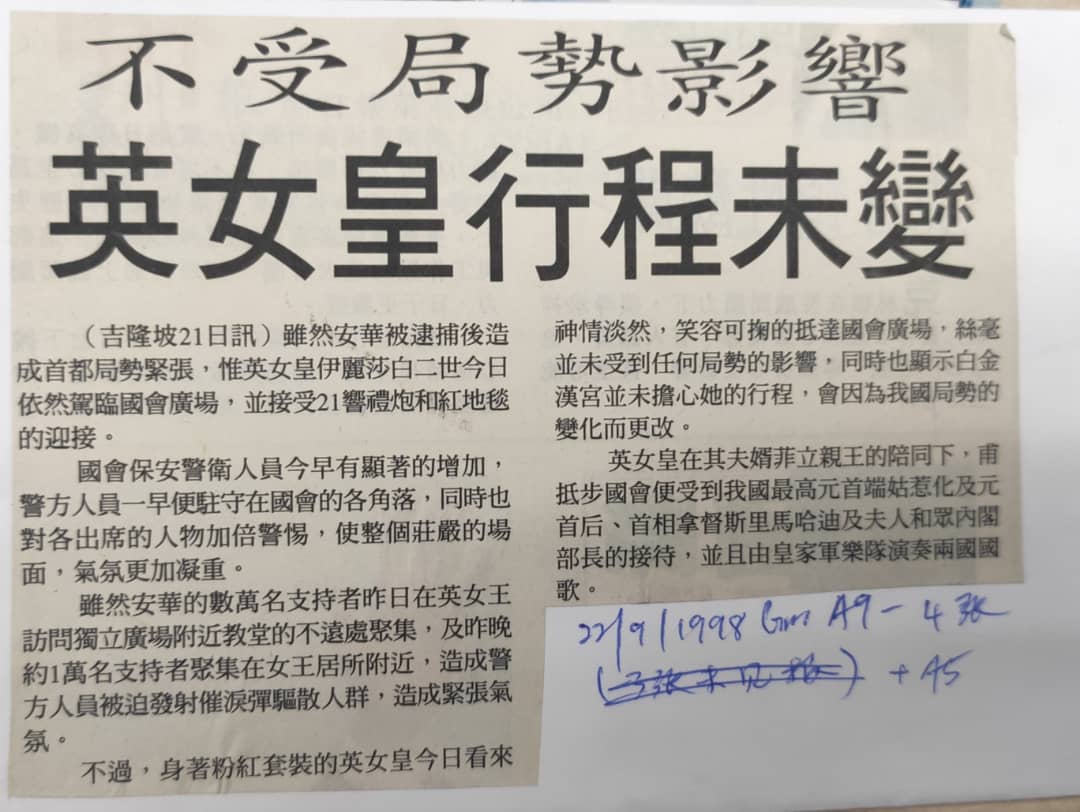 不受局勢影響
英女皇行程未變
（吉隆坡21日訊）雖然安華被逮捕後造
成首都局勢緊張，惟英女皇伊麗莎白二世今日
依然駕臨國會廣場，並接受21響禮炮和紅地毯
的迎接。
國會保安警衛人員今早有顯著的增加，
警方人員一早便駐守在國會的各角落，同時也
對各出席的人物加倍警惕，使整個莊嚴的場
面，氣氛更加凝重。
雖然安華的數萬名支持者昨日在英女王
訪問獨立廣場附近教堂的不遠處聚集，及昨晚
約1萬名支持者聚集在女王居所附近，造成警
方人員被迫發射催淚彈驅散人群，造成緊張氣
氛。
不過，身著粉紅套裝的英女皇今日看來
神情淡然，笑容可掬的抵達國會廣場，絲毫
並未受到任何局勢的影響，同時也顯示白金
漢宮並未擔心她的行程，會因為我國局勢的
變化而更改。
英女皇在其夫婿菲立親王的陪同下，甫
抵步國會便受到我國最高元首端姑惹化及元
首后、首相拿督斯里馬哈迪及夫人和眾內閣
部長的接待，並且由皇家軍樂隊演奏兩國國
歌。
22/9/1998 A9 - 4張
+ A5